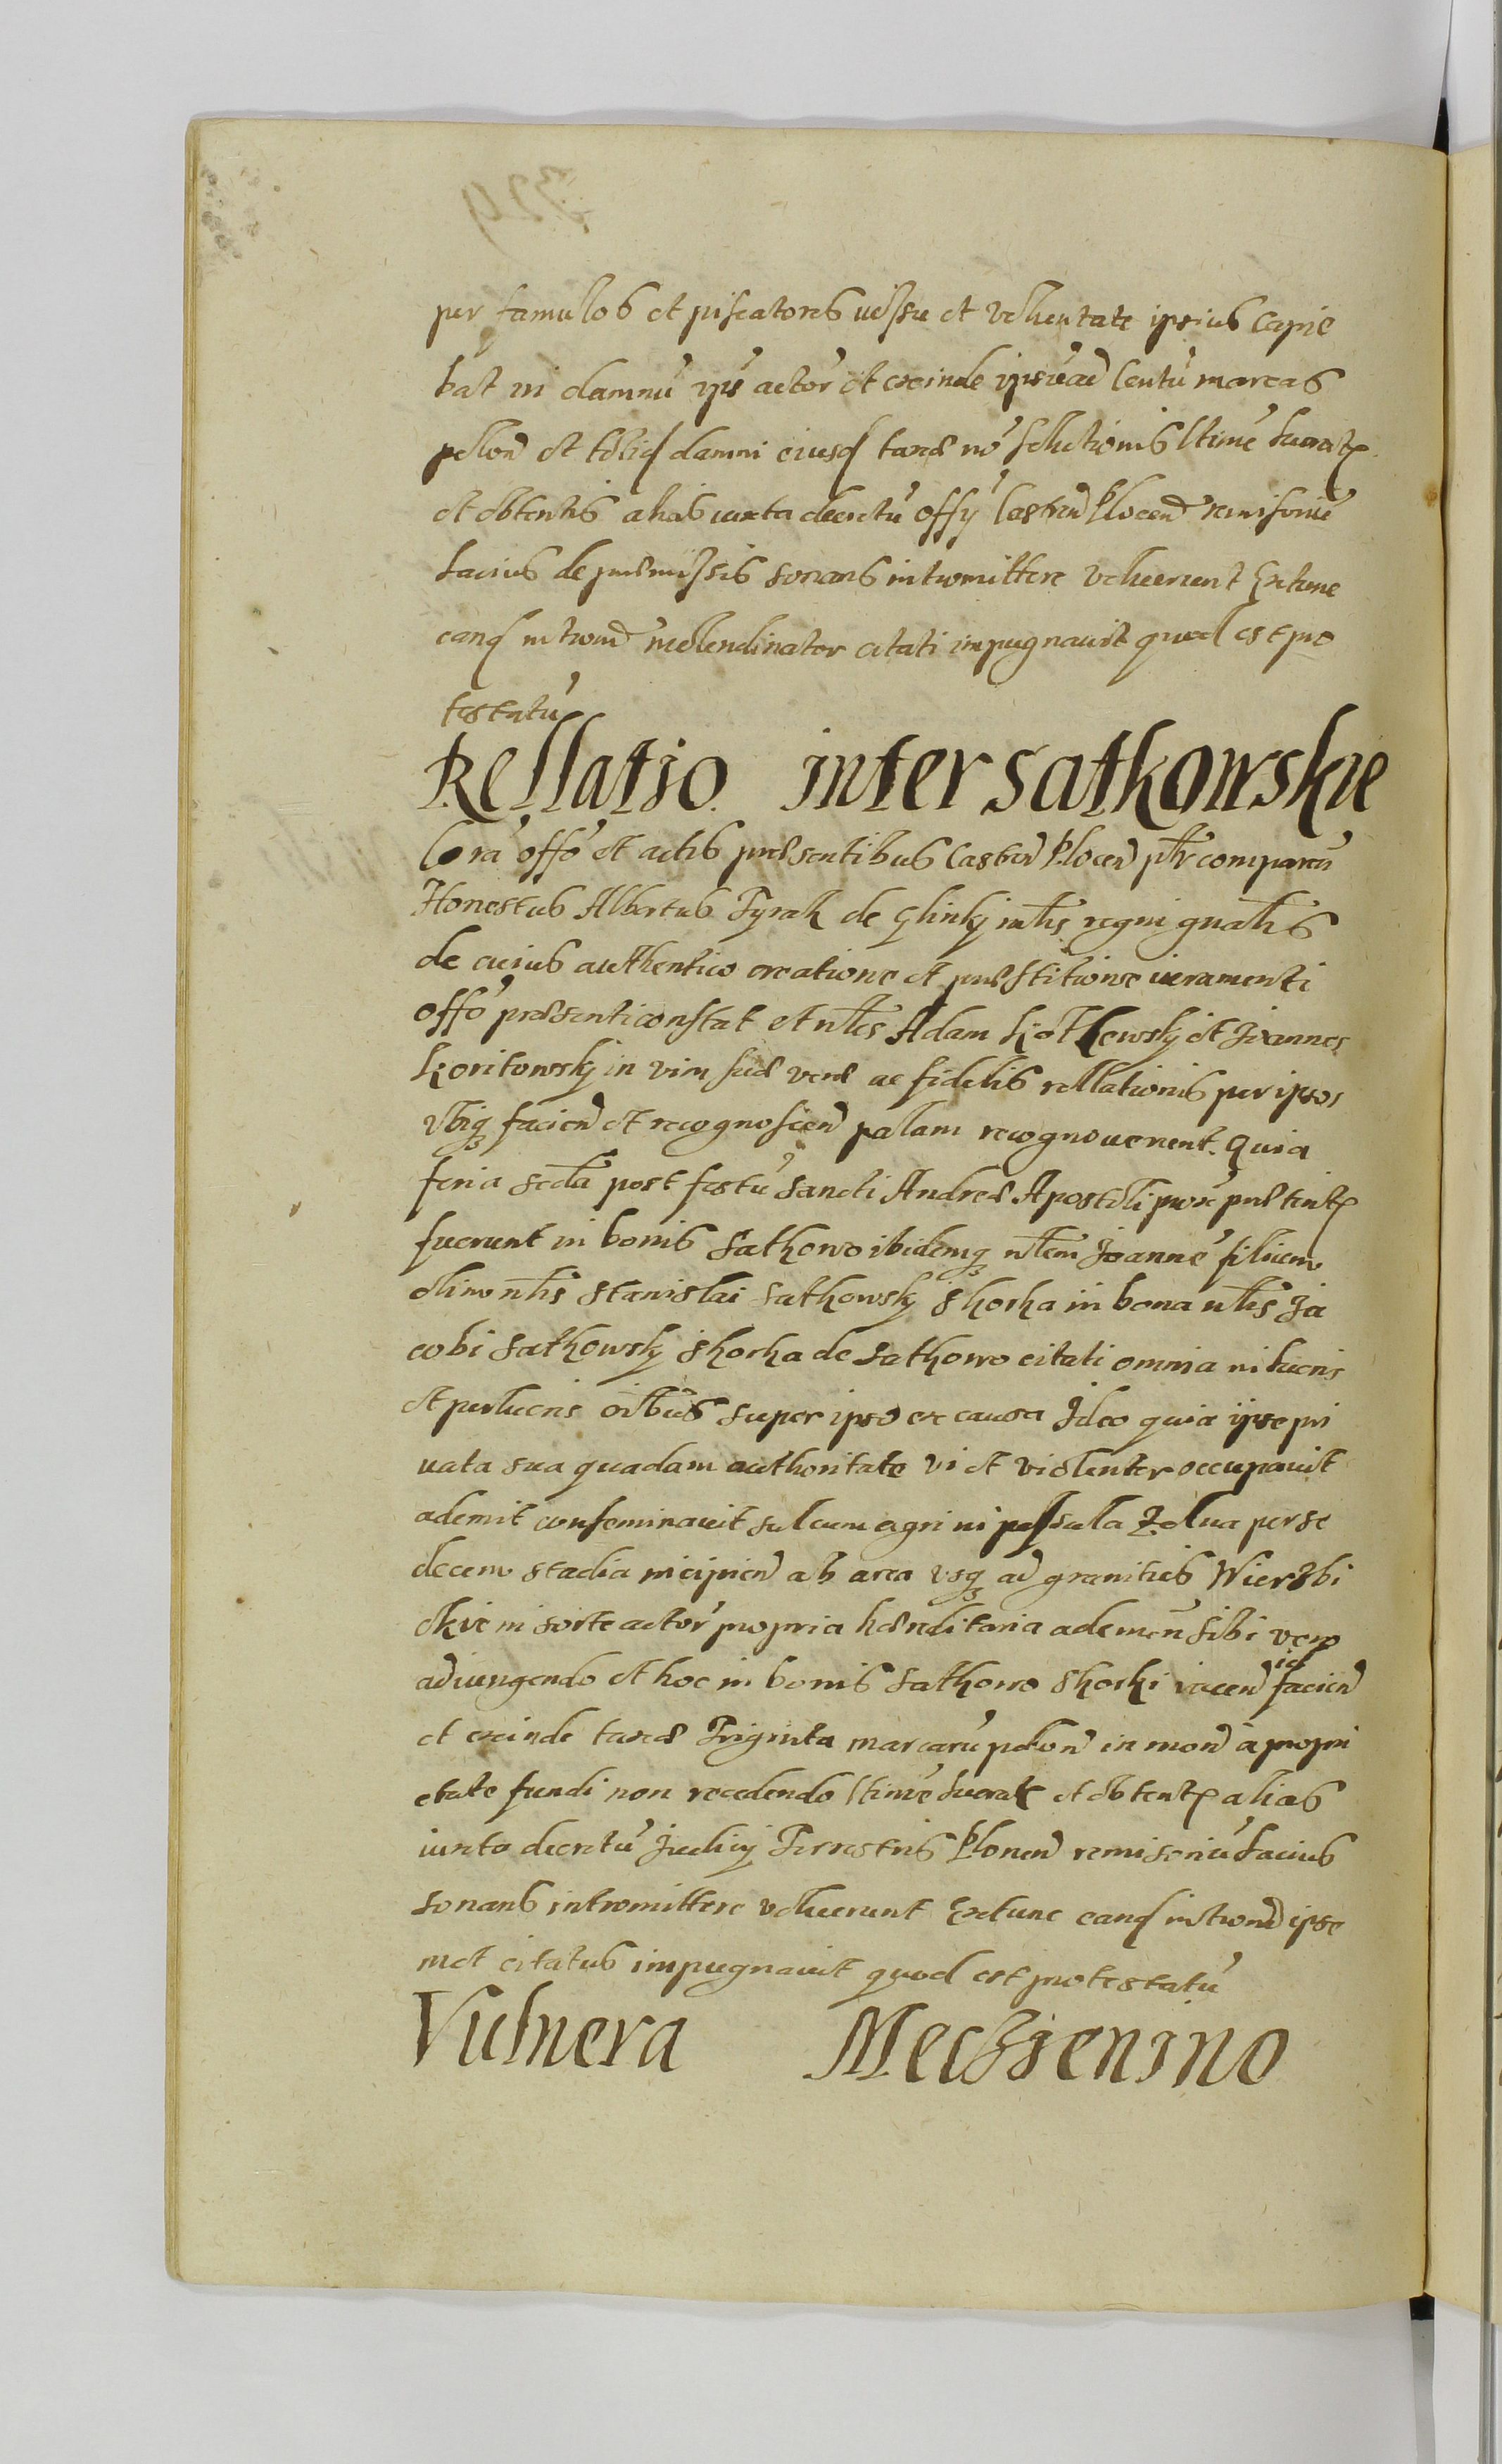 per famulos et piscatores uissu et voluntate ipsius capie
bat in damnu ips actor et exinde ipsu ad Centu marcas
polon et tdliq damni eiusd taxæ no solutionis ltime lucrat
et obtentis alias iuxta decretu offy Castren Plocen remisoriu
Lacius de præmissis sonans intromittere voluerunt Extunc
eand introm molendinator citati impugnavit quod est pro
testatu
Rellatio inter Satkowskie
Cora offo et actis præsentibus Castren Plocen pltr comparen
Honestus Albertus Pyrak de Glinky mlis regni gnalis
de cuius authentico creatione et præstitione iuramenti
offo præsenti constat et nles Adam Kothlewsky et Joannes
Koritowsky in vim suæ veræ ac fidelis rellationis per ipsos
vbiq facien et recognoscen palam recognouerunt. Quia
feria scda post festu Sancti Andreæ Apostoli prox præterit
fuerunt in bonis Sathowo ibidemq nlem Joanne filium
olim nlis Stanislai Sathowsky Shorka in bona nlis Ja
cobi Sathowsky Shorka de Sathowo citati omnia in lucris
et perlucris oibus super ipso ex causa Ideo quia ipse pri
uata sua quadam authoritate vi et violenter occupauit
ademit conseminauit sulcum agri in pessula Zolna per se
decem stadia incipien ab area vsq ad granities Wierzbi
ckie in sorte actor propria hæreditaria ademen sibi vero
adiungendo et hoc in bonis Sathowo Shorki iacen id facien
et exinde taxæ Triginta marcaru polon in mon a propri
etate fundi non recedendo ltime lucrat et obtent alias
iuxto decretu Judicy Terrestris Plonen remisoriu Lacius
sonans intromittere voluerunt Extunc eand introm ipse
met citatus impugnauit quod est protestatu
Vulnera Meczienino